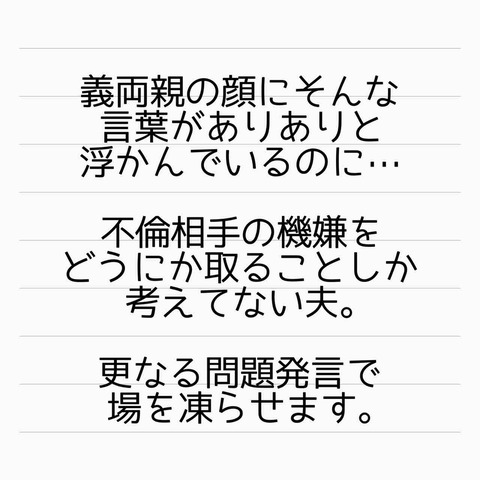 義両親の顔にそんな
言葉がありありと
浮かんでいるのに…
不倫相手の機嫌を
どうにか取ることしか
考えてない夫。
更なる問題発言で
場を凍らせます。